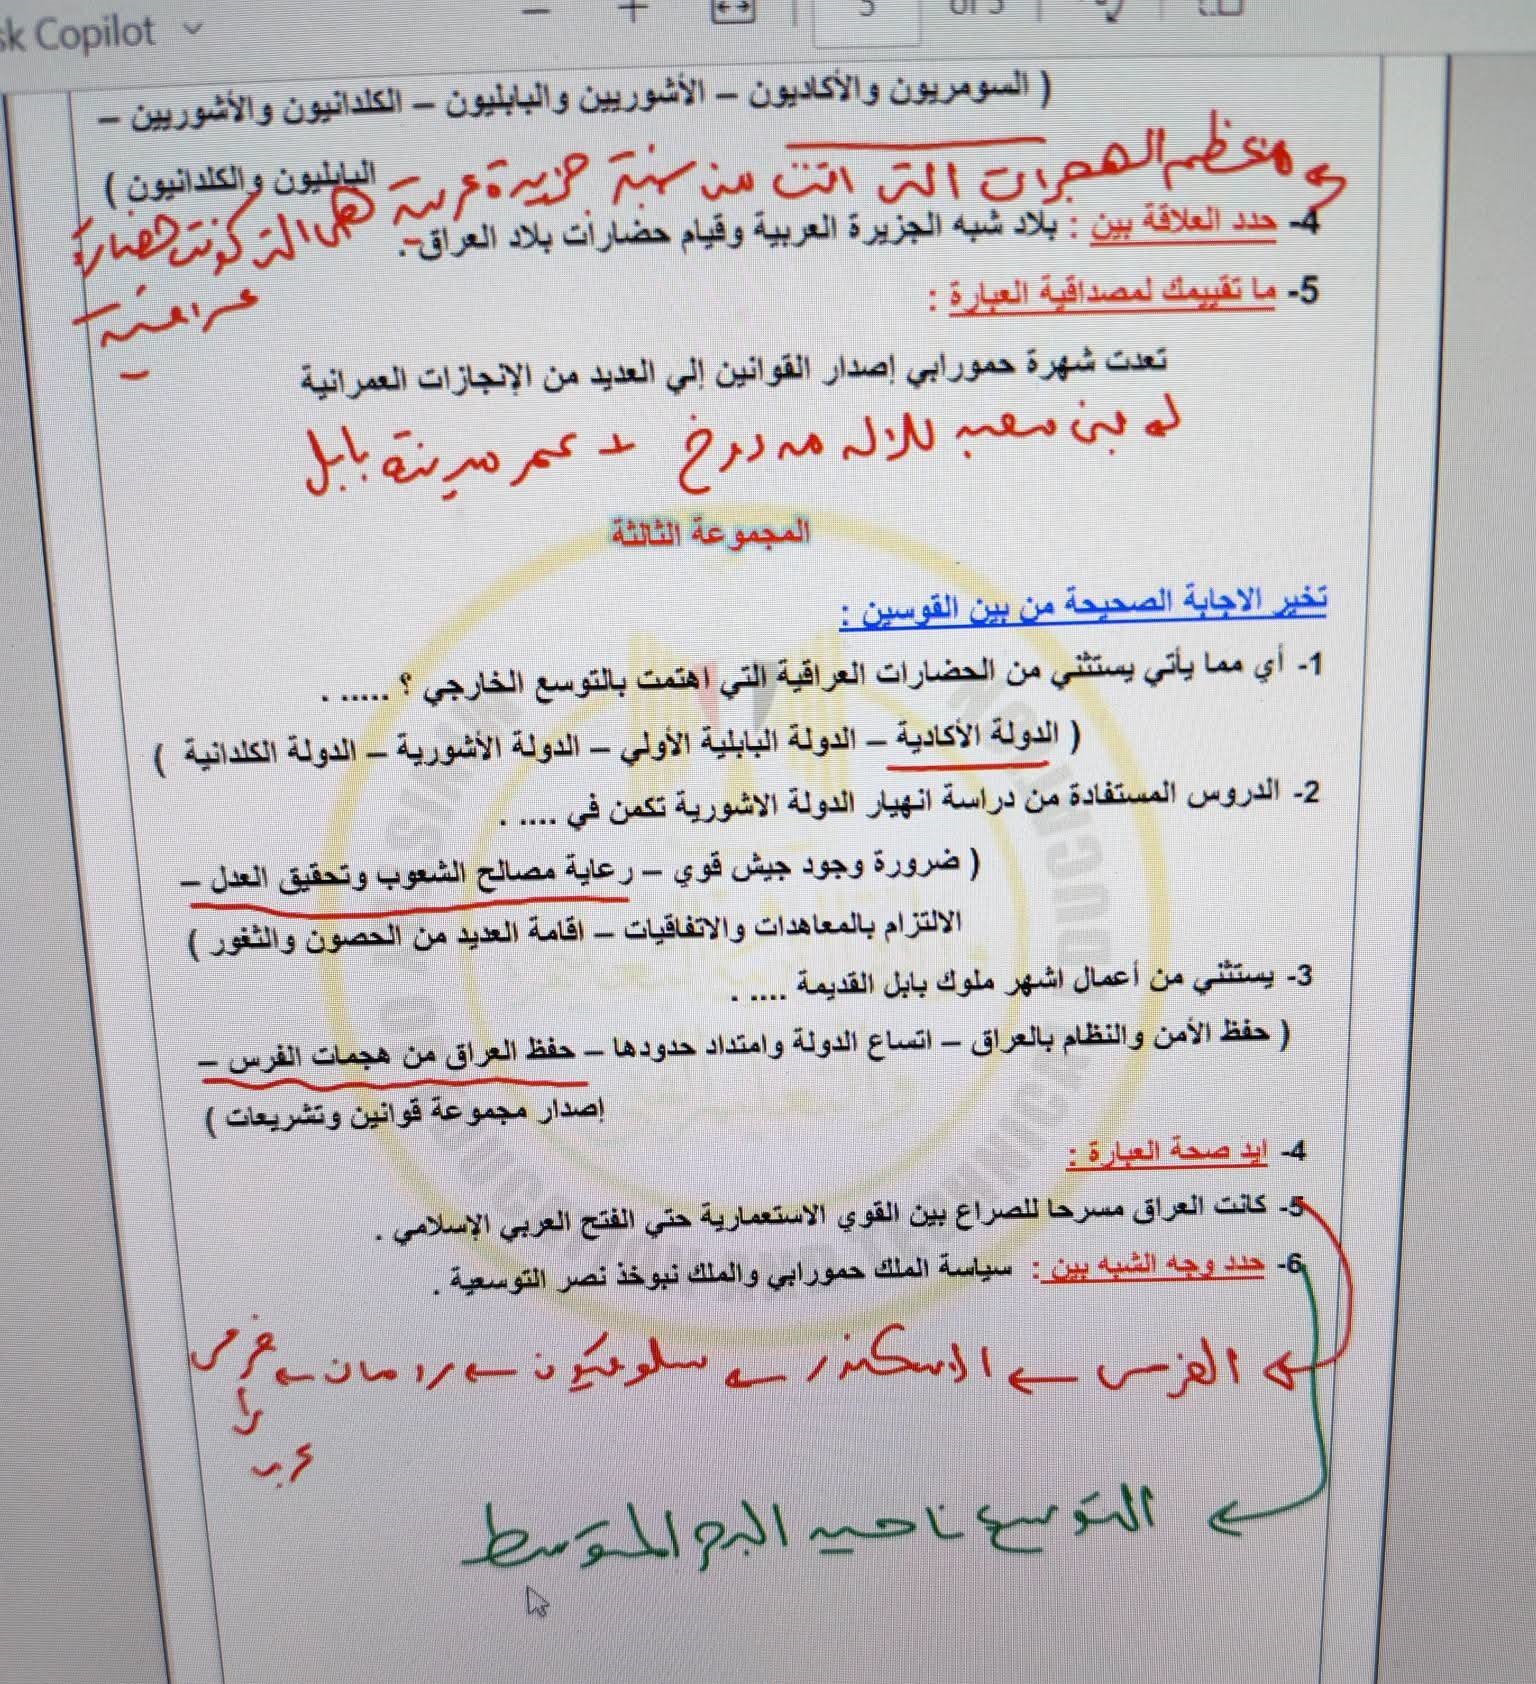 sk Copilot
( السومريون والأكاديون – الأشوريين والبابليون – الكلدانيون والأشوريين –
البابليون والكلدانيون )
معظم الهجرات التى اتت من شبة جزيرة عربية هى التى كونت حضارة
عراقية
4- حدد العلاقة بين : بلاد شبه الجزيرة العربية وقيام حضارات بلاد العراق .
5- ما تقييمك لمصداقية العبارة :
تعدت شهرة حمورابي إصدار القوانين إلي العديد من الإنجازات العمرانية
بنى معبد للاله مردوخ + عمر مدينة بابل
المجموعة الثالثة
تخير الاجابة الصحيحة من بين القوسين :
1- أي مما يأتي يستثني من الحضارات العراقية التي اهتمت بالتوسع الخارجي ؟ ..... .
( الدولة الأكادية – الدولة البابلية الأولي – الدولة الأشورية – الدولة الكلدانية )
2- الدروس المستفادة من دراسة انهيار الدولة الاشورية تكمن في .... .
( ضرورة وجود جيش قوي – رعاية مصالح الشعوب وتحقيق العدل –
الالتزام بالمعاهدات والاتفاقيات – اقامة العديد من الحصون والثغور )
3- يستثني من أعمال اشهر ملوك بابل القديمة .... .
( حفظ الأمن والنظام بالعراق – اتساع الدولة وامتداد حدودها – حفظ العراق من هجمات الفرس –
إصدار مجموعة قوانين وتشريعات )
4- ايد صحة العبارة :
5- كانت العراق مسرحا للصراع بين القوي الاستعمارية حتي الفتح العربي الإسلامي .
6- حدد وجه الشبه بين : سياسة الملك حمورابي والملك نبوخذ نصر التوسعية .
الفرس ← الاسكندر ← سلوقيون ← رومان ← فرس
عرب
التوسع ناحيه البحر المتوسط